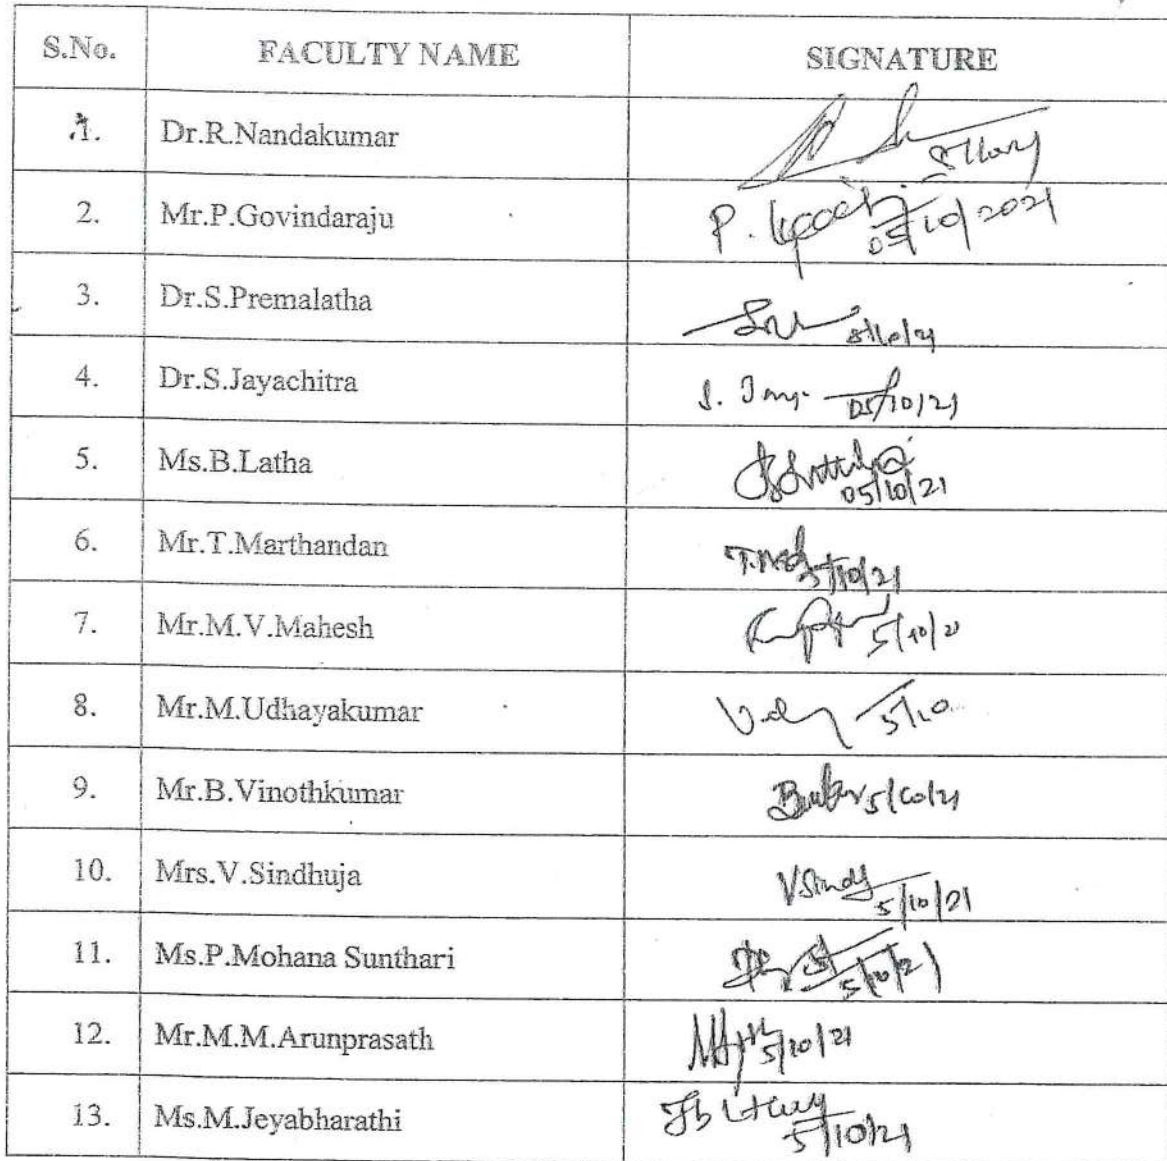 S.No. FACULTY NAME SIGNATURE
1. Dr.R.Nandakumar
2. Mr.P.Govindaraju P. 05/10/2021
3. Dr.S.Premalatha 5/10/21
4. Dr.S.Jayachitra S. Jay 05/10/21
5. Ms.B.Latha 05/10/21
6. Mr.T.Marthandan 5/10/21
7. Mr.M.V.Mahesh 5/10/21
8. Mr.M.Udhayakumar 5/10
9. Mr.B.Vinothkumar 5/10/21
10. Mrs.V.Sindhuja VSindh 5/10/21
11. Ms.P.Mohana Sunthari 5/10/21
12. Mr.M.M.Arunprasath 5/10/21
13. Ms.M.Jeyabharathi 5/10/21